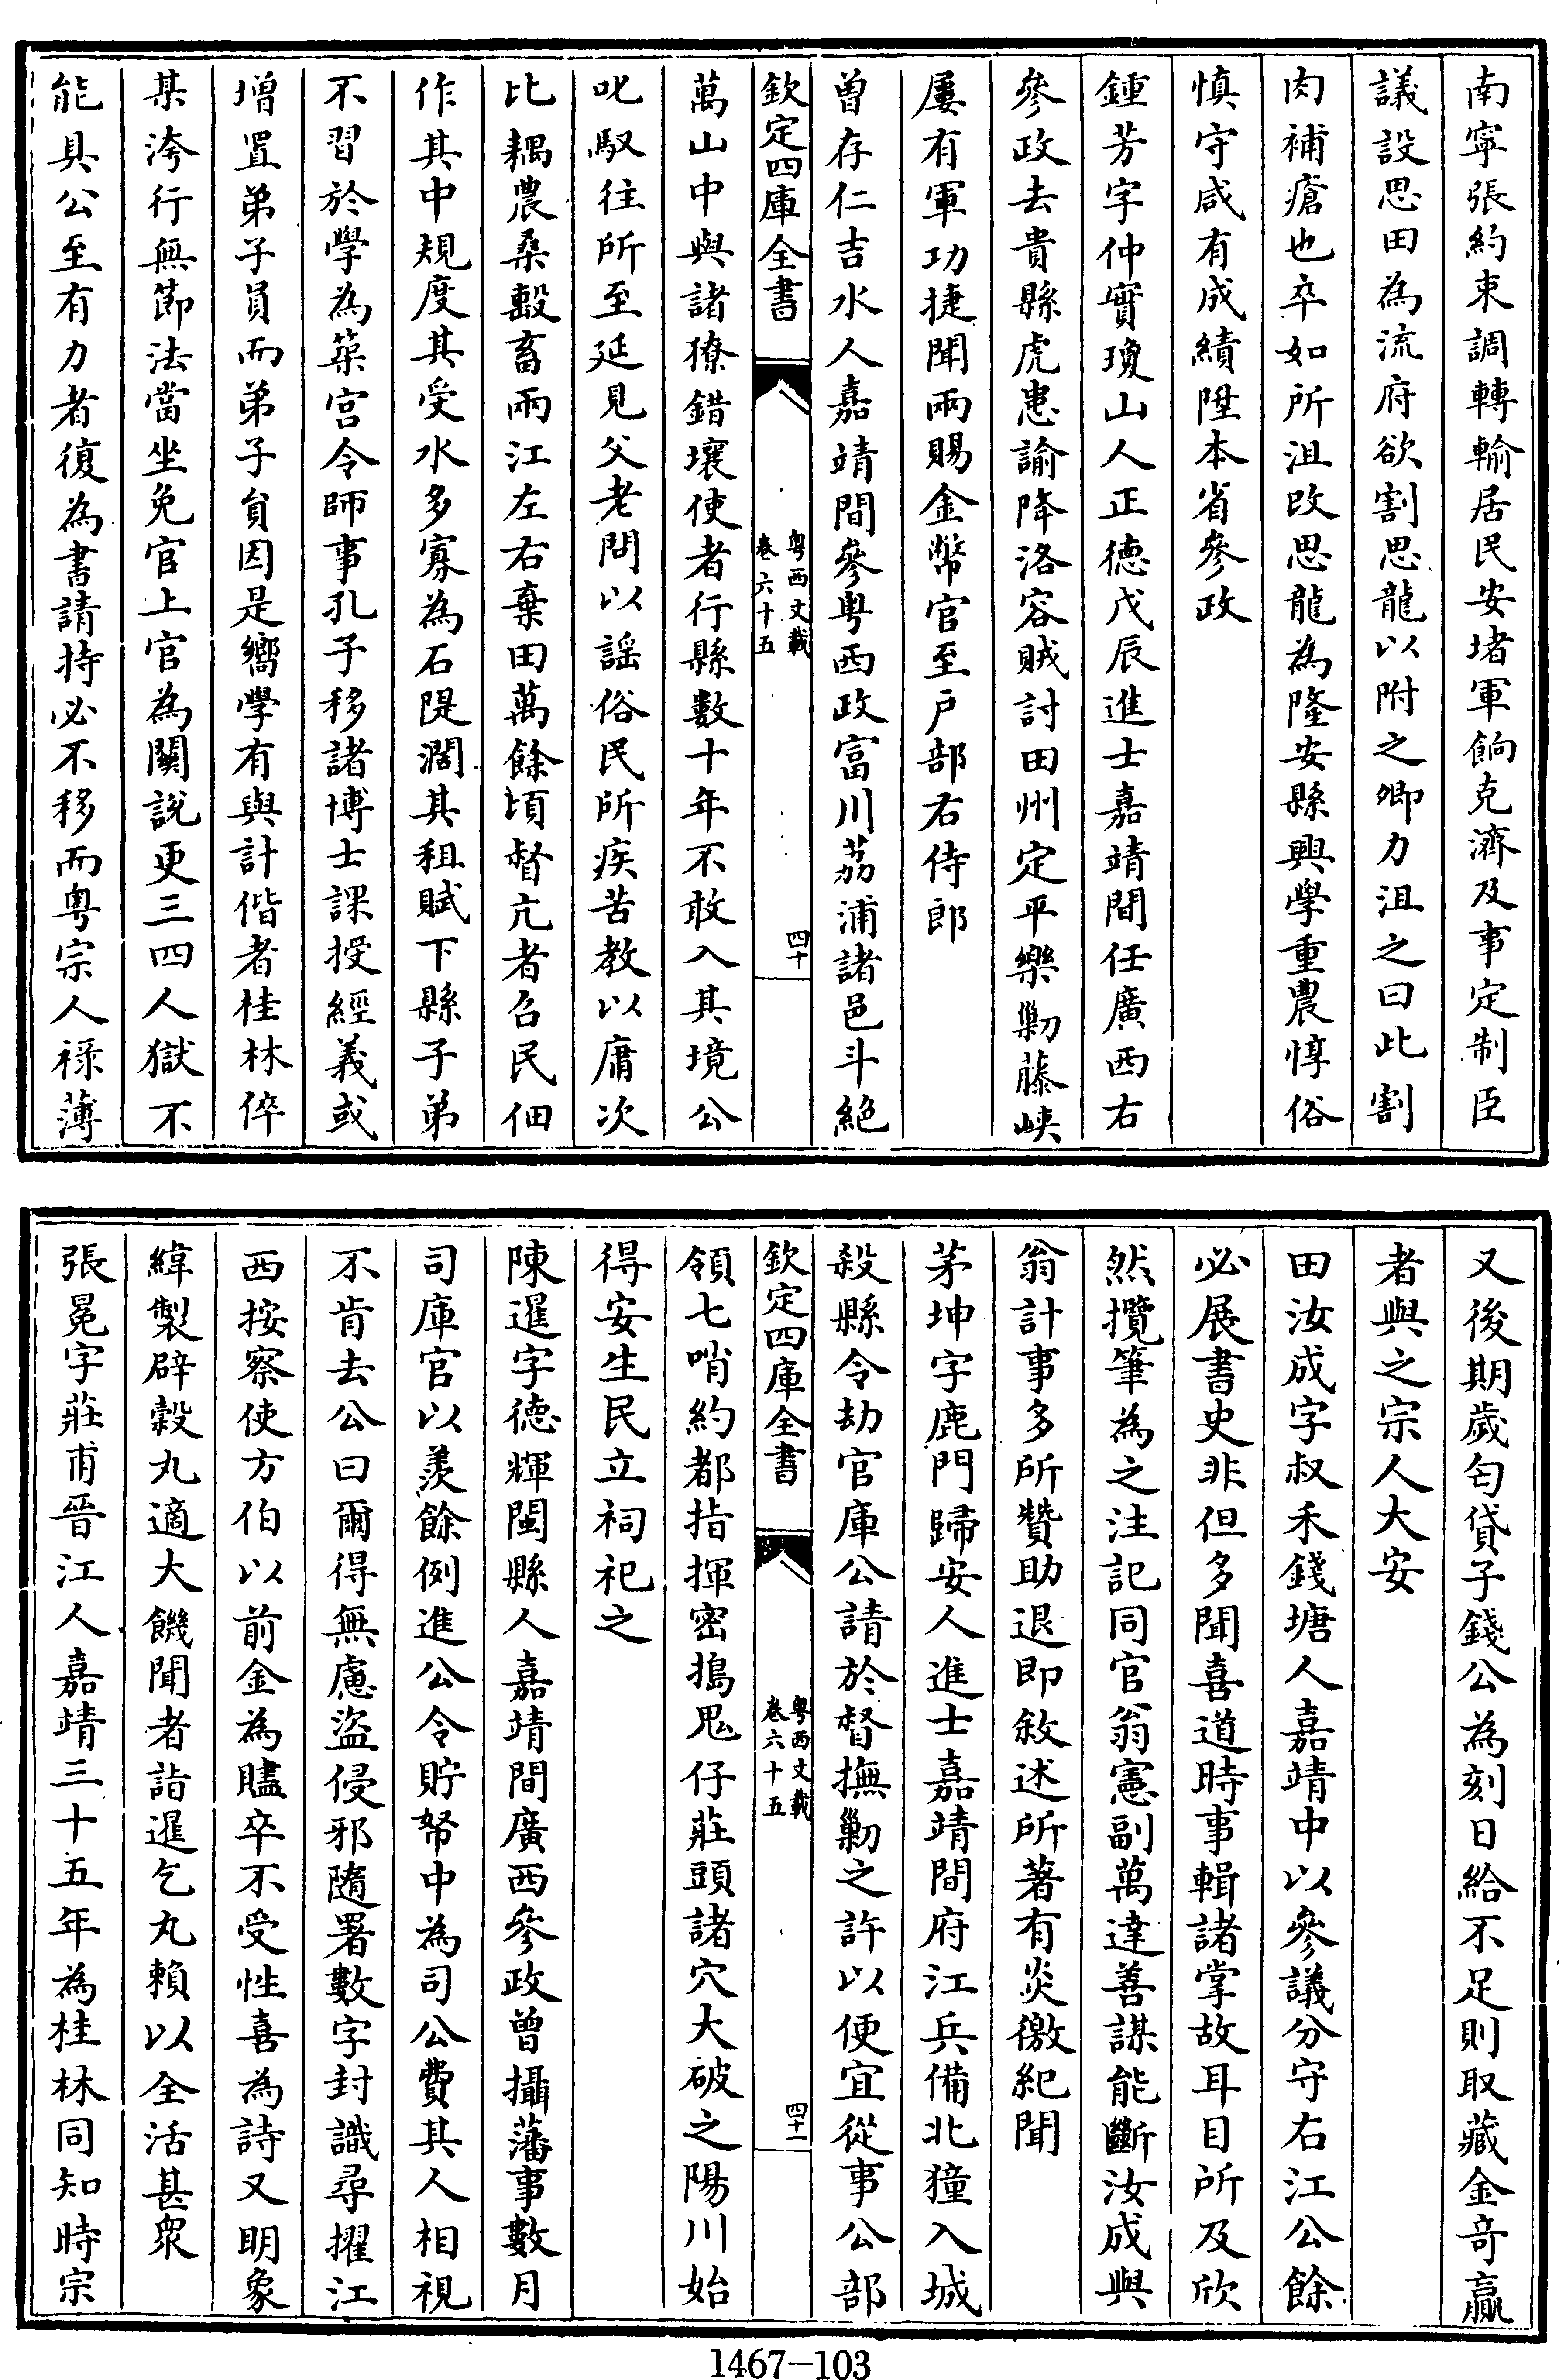 南寧張約束調轉輸居民安堵軍餉克濟及事定制臣
議設思田為流府欲割思龍以附之卿力沮之曰此割
肉補瘡也卒如所沮改思龍為隆安縣興學重農惇俗
慎守咸有成績陞本省參政
鍾芳字仲實瓊山人正德戊辰進士嘉靖間任廣西右
參政去貴縣虎患諭降洛容賊討田州定平樂勦藤峽
屢有軍功捷聞兩賜金幣官至戶部右侍郎
曾存仁吉水人嘉靖間參粵西政富川荔浦諸邑斗絕
欽定四庫全書
粵西文載
卷六十五
四十
萬山中與諸獠錯壤使者行縣數十年不敢入其境公
叱馭往所至延見父老問以謡俗民所疾苦教以庸次
比耦農桑㲉畜兩江左右棄田萬餘頃督亢者召民佃
作其中規度其受水多寡為石隄濶其租賦下縣子弟
不習於學為築宮令師事孔子移諸博士課授經義或
增置弟子員而弟子貟因是嚮學有與計偕者桂林倅
某洿行無節法當坐免官上官為關說更三四人獄不
能具公至有力者復為書請持必不移而粵宗人祿薄
又後期歲匄貸子錢公為刻日給不足則取藏金竒贏
者與之宗人大安
田汝成字叔禾錢塘人嘉靖中以參議分守右江公餘
必展書史非但多聞喜道時事輯諸掌故耳目所及欣
然攬筆為之注記同官翁憲副萬達善謀能斷汝成與
翁計事多所贊助退即敘述所著有炎徼紀聞
茅坤字鹿門歸安人進士嘉靖間府江兵備北獞入城
殺縣令劫官庫公請於督撫勦之許以便宜從事公部
欽定四庫全書
粵西文載
卷六十五
四十一
領七哨約都指揮密搗鬼仔莊頭諸穴大破之陽川始
得安生民立祠祀之
陳暹字德輝閩縣人嘉靖間廣西參政曾攝藩事數月
司庫官以羨餘例進公令貯帑中為司公費其人相視
不肯去公曰爾得無慮盜侵邪隨署數字封識尋擢江
西按察使方伯以前金為贐卒不受性喜為詩又明象
緯製辟穀丸適大饑聞者詣暹乞丸賴以全活甚眾
張冕字莊甫晉江人嘉靖三十五年為桂林同知時宗
1467—103